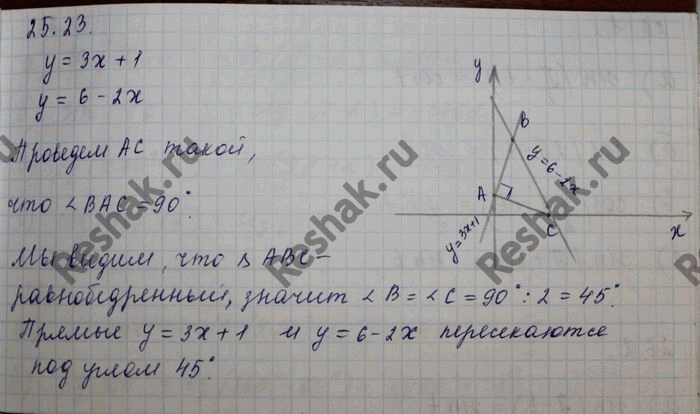 25.23.
y = 3x + 1
y = 6 - 2x
Проведем AC такой,
что ∠BAC = 90°.
Мы видим, что △ ABC –
равнобедренный, значит ∠B = ∠C = 90° : 2 = 45°.
Прямые y = 3x + 1 и y = 6 - 2x пересекаются
под углом 45°.
y
B
y = 6 - 2x
A
C
x
y = 3x + 1
Reshak.ru
Reshak.ru
Reshak.ru
Reshak.ru
Reshak.ru
Reshak.ru